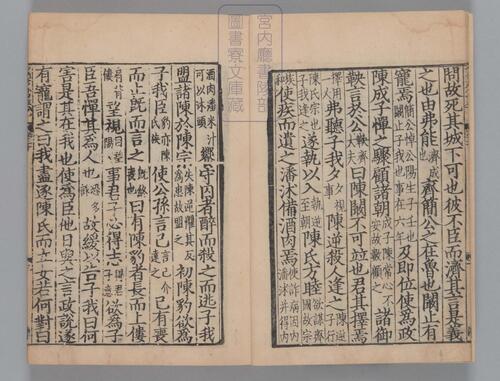 宮内廳書陵部
圖書寮文庫
問故死其城下可也彼不臣而濟其言是義
之也由弗能濟成也齊簡公之在魯也闞止有
寵焉簡公悼公陽生子壬也闞止子我也事在六年及即位使為政
陳成子憚之驟顧諸朝成子陳常心不安故數顧之諸御
鞅言於公鞅齊大夫曰陳闞不可並也君其擇焉
擇用一人弗聽子我夕夕視事陳逆殺人逢之陳逆子行
陳氏宗也子我逢之遂執以入執逆入至朝陳氏方睦欲謀齊國故宗
族和使疾而遺之潘沐備酒肉焉使詐病因内潘沐并得内
酒肉潘米汁可以沐頭饗守囚者醉而殺之而逃子我
盟諸陳於陳宗失陳逆懼其反為患故盟之初陳豹欲為
子我臣豹亦陳氏族使公孫言己言己介達之已有喪
而止既而言之既終喪也曰有陳豹者長而上僂
肩背僂望視目望陽事君子必得志得君子意欲為子
臣吾憚其為人也恐多詐故緩以告子我曰何
害是其在我也使為臣他日與之言政說遂
有寵謂之曰我盡逐陳氏而立女若何對曰